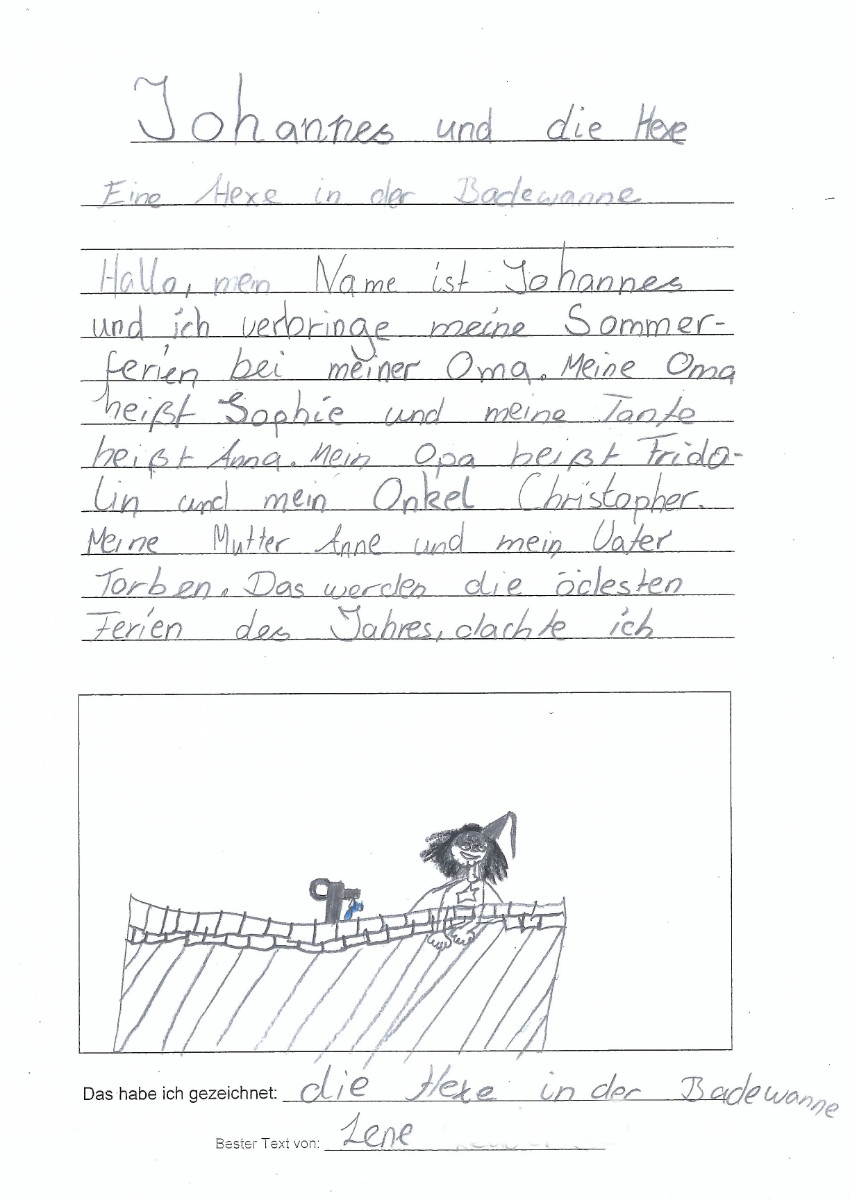 Johannes und die Hexe
Eine Hexe in der Badewanne
Hallo, mein Name ist Johannes
und ich verbringe meine Sommer-
ferien bei meiner Oma. Meine Oma
heißt Sophie und meine Tante
heißt Anna. Mein Opa heißt Frido-
lin und mein Onkel Christopher.
Meine Mutter Anne und mein Vater
Torben. Das werden die ödesten
Ferien des Jahres, dachte ich
Das habe ich gezeichnet: die Hexe in der Badewanne
Bester Text von: Lene